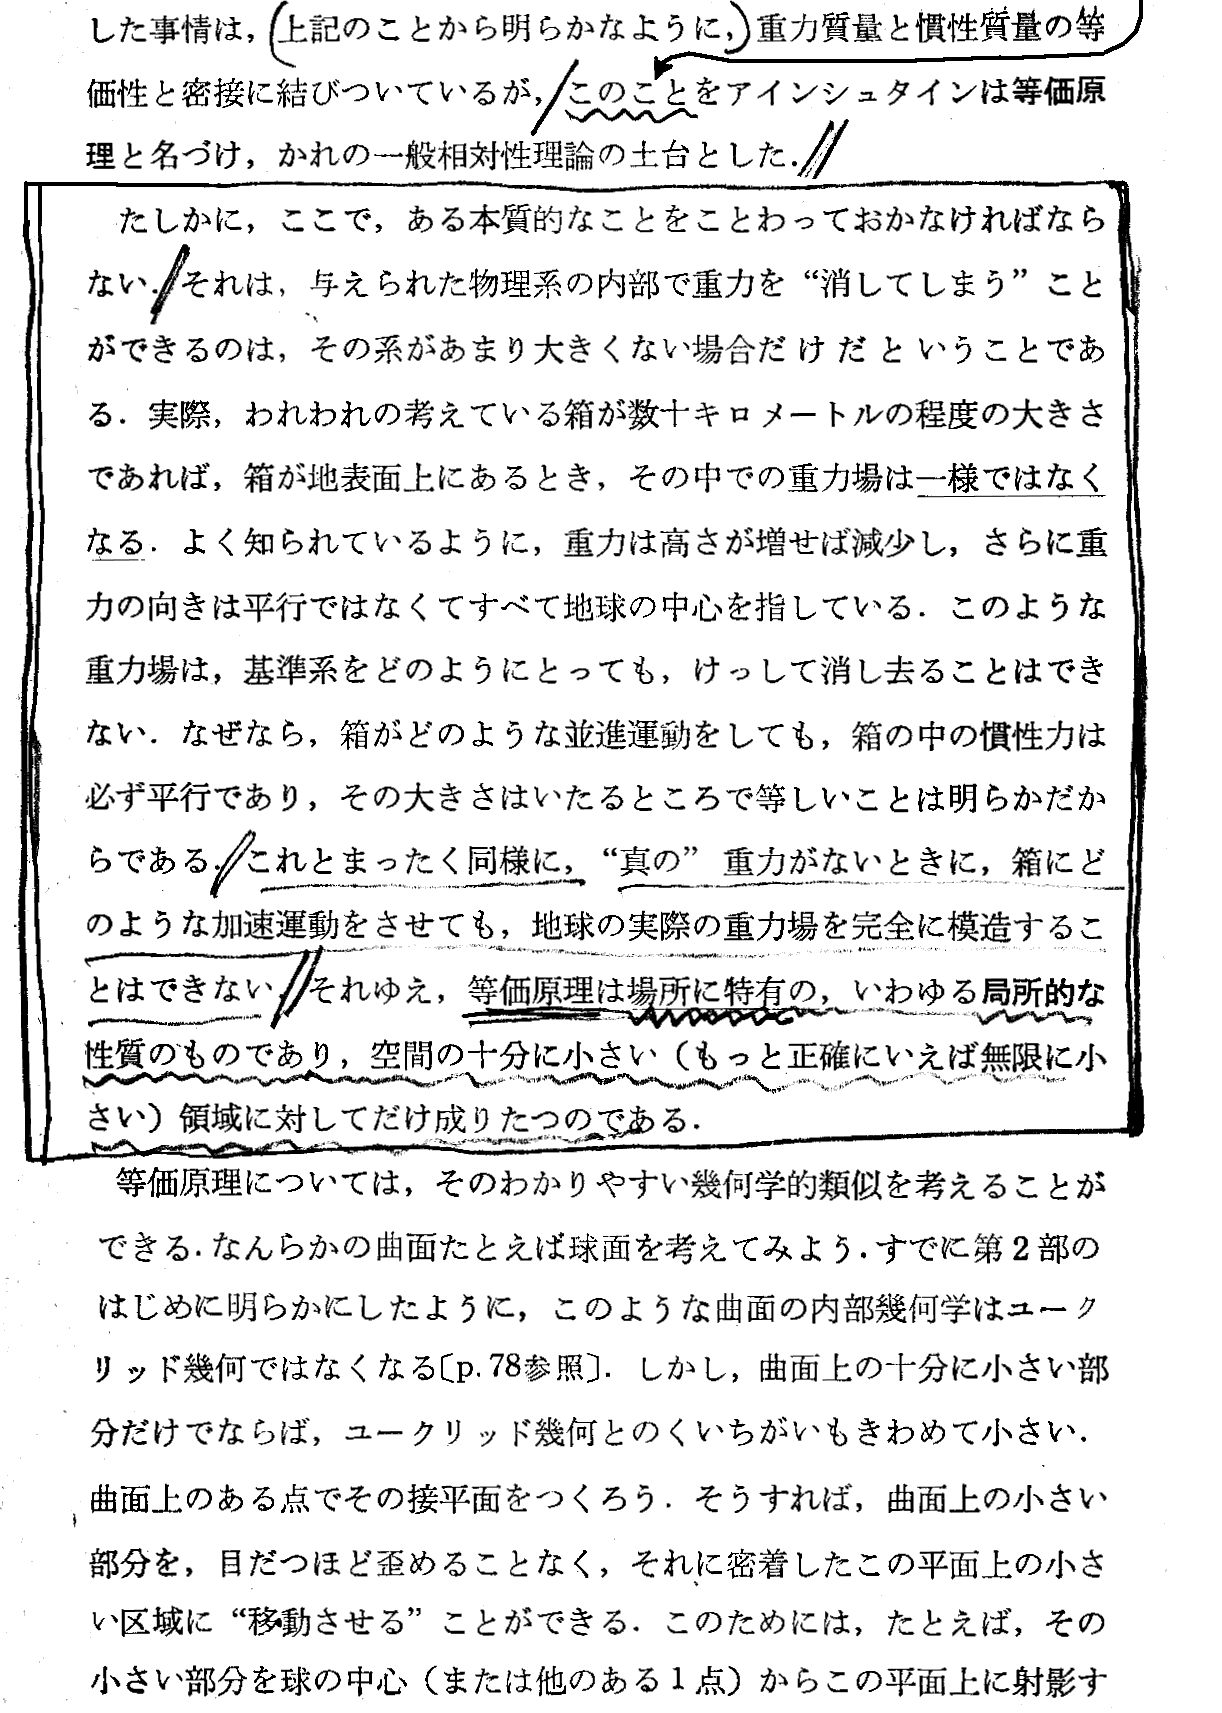 した事情は，(上記のことから明らかなように，)重力質量と慣性質量の等
価性と密接に結びついているが，このことをアインシュタインは等価原
理と名づけ，かれの一般相対性理論の土台とした．
たしかに，ここで，ある本質的なことをことわっておかなければなら
ない．それは，与えられた物理系の内部で重力を“消してしまう”こと
ができるのは，その系があまり大きくない場合だけだということであ
る．実際，われわれの考えている箱が数十キロメートルの程度の大きさ
であれば，箱が地表面上にあるとき，その中での重力場は一様ではなく
なる．よく知られているように，重力は高さが増せば減少し，さらに重
力の向きは平行ではなくてすべて地球の中心を指している．このような
重力場は，基準系をどのようにとっても，けっして消し去ることはでき
ない．なぜなら，箱がどのような並進運動をしても，箱の中の慣性力は
必ず平行であり，その大きさはいたるところで等しいことは明らかだか
らである．これとまったく同様に，“真の”重力がないときに，箱にど
のような加速運動をさせても，地球の実際の重力場を完全に模造するこ
とはできない．それゆえ，等価原理は場所に特有の，いわゆる局所的な
性質のものであり，空間の十分に小さい（もっと正確にいえば無限に小
さい）領域に対してだけ成りたつのである．
等価原理については，そのわかりやすい幾何学的類似を考えることが
できる．なんらかの曲面たとえば球面を考えてみよう．すでに第2部の
はじめに明らかにしたように，このような曲面の内部幾何学はユーク
リッド幾何ではなくなる〔p.78参照〕．しかし，曲面上の十分に小さい部
分だけでならば，ユークリッド幾何とのくいちがいもきわめて小さい．
曲面上のある点でその接平面をつくろう．そうすれば，曲面上の小さい
部分を，目だつほど歪めることなく，それに密着したこの平面上の小さ
い区域に“移動させる”ことができる．このためには，たとえば，その
小さい部分を球の中心（または他のある1点）からこの平面上に射影す